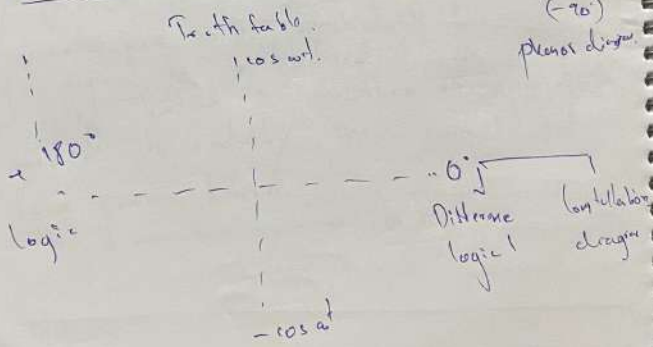 Truth table.
(-90°)
phasor diagram.
cos ωt.
180°
0°
logic
Difference
logic 1
Constellation
diagram
- cos ωt